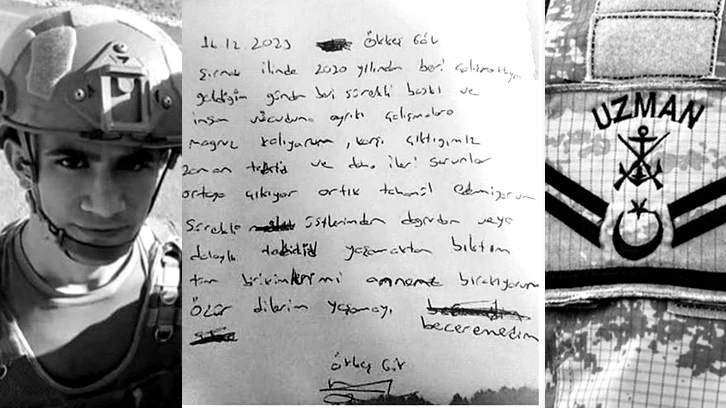 14.12.2023 Ökkeş Gör
Şırnak ilinde 2020 yılından beri çalışmaktayım
geldiğim günden beri sürekli baskı ve
insan vücuduna aykırı çalışmalara
maruz kalıyorum, karşı çıktığımız
zaman tehdid ve daha ileri sorunlar
ortaya çıkıyor artık tahamül edemiyorum
sürekli üstlerimden doğrudan veya
dolaylı tehdid yaşamaktan bıktım
tüm birikimlerimi anneme bırakıyorum
Özür dilerim yaşamayı
beceremedim
Ökkeş Gör
UZMAN